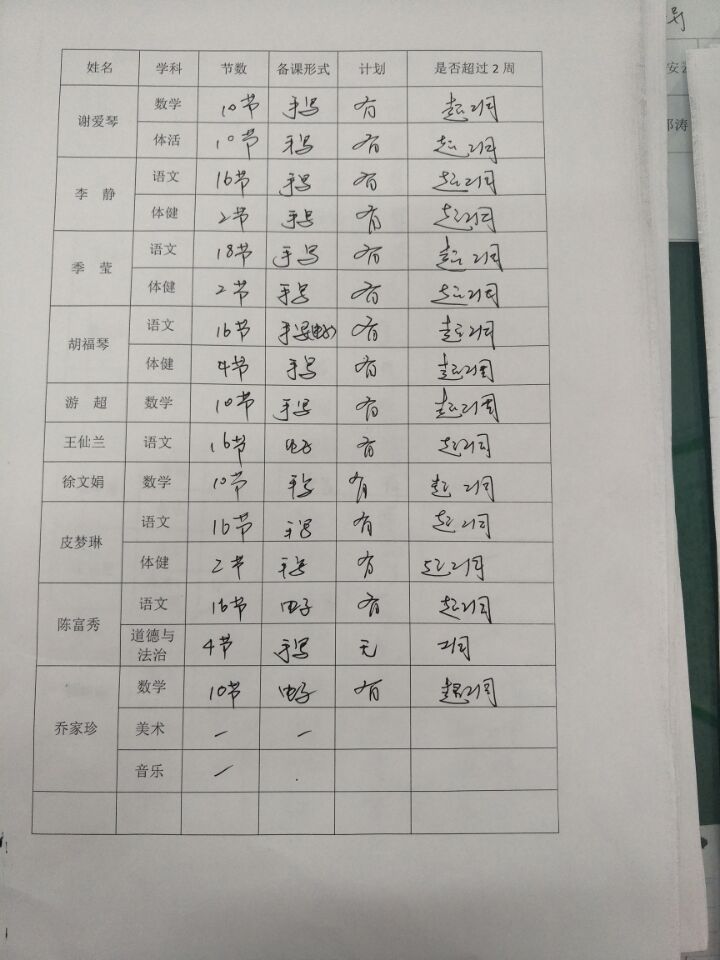 姓名 学科 节数 备课形式 计划 是否超过2周
谢爱琴 数学 10节 手写 有 超2周
体活 10节 手写 有 超2周
李 静 语文 16节 手写 有 超2周
体健 2节 手写 有 超2周
季 莹 语文 18节 手写 有 超2周
体健 2节 手写 有 超2周
胡福琴 语文 16节 手写(电子) 有 超2周
体健 4节 手写 有 超2周
游 超 数学 10节 手写 有 超2周
王仙兰 语文 16节 电子 有 超2周
徐文娟 数学 10节 手写 有 超2周
皮梦琳 语文 16节 手写 有 超2周
体健 2节 手写 有 超2周
陈富秀 语文 16节 电子 有 超2周
道德与
法治 4节 手写 无 2周
乔家珍 数学 10节 电子 有 超2周
美术 — —
音乐 —